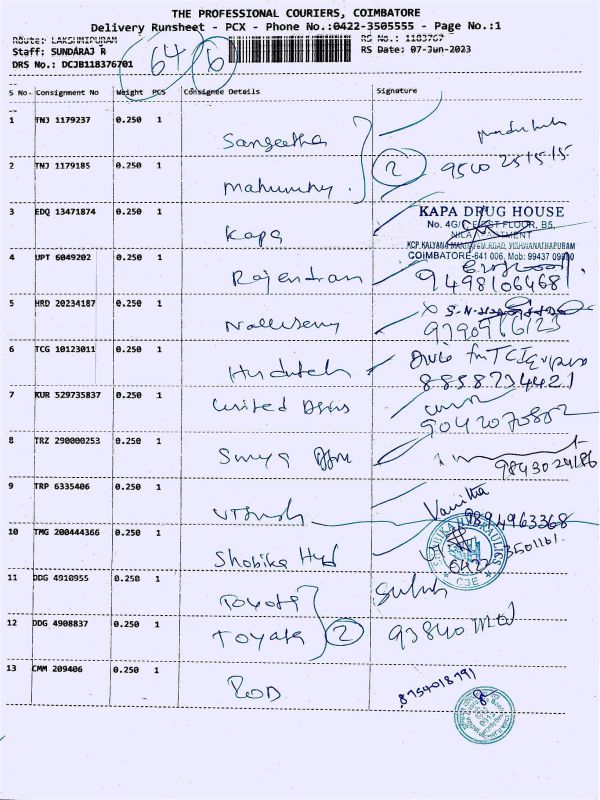 THE PROFESSIONAL COURIERS, COIMBATORE
Delivery Runsheet - PCX - Phone No.:0422-3505555 - Page No.:1
Route: LAKSHMIPURAM
RS No.: 1183767
Staff: SUNDARAJ R
64
6
RS Date: 07-Jun-2023
DRS No.: DCJB118376701
S No. Consignment No Weight PCS Consignee Details Signature
1 TNJ 1179237 0.250 1 Sangeetha
2 TNJ 1179185 0.250 1 2
3 EDQ 13471874 0.250 1 Kapa KAPA DRUG HOUSE
FLOOR, B5,
COIMBATORE-641 006. Mob: 99437
4 UPT 6049202 0.250 1 Rajendran 9498106468
5 HRD 20234187 0.250 1
6 TCG 10123011 0.250 1 8858734421
7 KUR 529735837 0.250 1 United 9042070882
8 TRZ 290000253 0.250 1 Surya 9843024186
9 TRP 6335406 0.250 1 Vanitha
9894963368
10 TMG 200444366 0.250 1 Shobika Hyd
CBE
11 DDG 4910955 0.250 1 Toyota
12 DDG 4908837 0.250 1 Toyata 2 93840
13 CMM 209406 0.250 1 8754018791